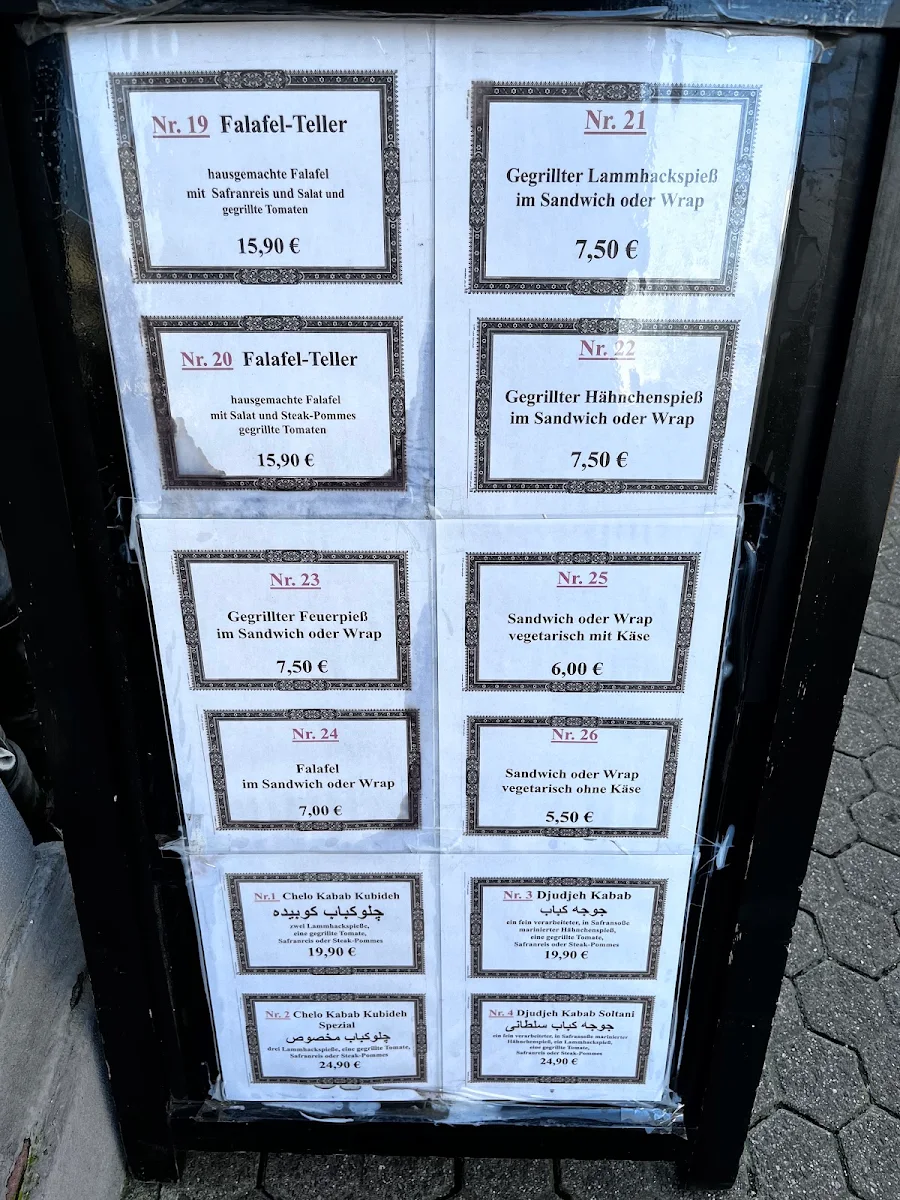 Nr. 19 Falafel-Teller
hausgemachte Falafel
mit Safranreis und Salat und
gegrillte Tomaten
15,90 €
Nr. 20 Falafel-Teller
hausgemachte Falafel
mit Salat und Steak-Pommes
gegrillte Tomaten
15,90 €
Nr. 21
Gegrillter Lammhackspieß
im Sandwich oder Wrap
7,50 €
Nr. 22
Gegrillter Hähnchenspieß
im Sandwich oder Wrap
7,50 €
Nr. 23
Gegrillter Feuerpieß
im Sandwich oder Wrap
7,50 €
Nr. 24
Falafel
im Sandwich oder Wrap
7,00 €
Nr. 25
Sandwich oder Wrap
vegetarisch mit Käse
6,00 €
Nr. 26
Sandwich oder Wrap
vegetarisch ohne Käse
5,50 €
Nr.1 Chelo Kabab Kubideh
چلوکباب کوبیده
zwei Lammhackspieße,
eine gegrillte Tomate,
Safranreis oder Steak-Pommes
19,90 €
Nr. 2 Chelo Kabab Kubideh
Spezial
چلوکباب مخصوص
drei Lammhackspieße, eine gegrillte Tomate,
Safranreis oder Steak-Pommes
24,90 €
Nr. 3 Djudjeh Kabab
جوجه کباب
ein fein verarbeiteter, in Safransoße
marinierter Hähnchenspieß,
eine gegrillte Tomate,
Safranreis oder Steak-Pommes
19,90 €
Nr. 4 Djudjeh Kabab Soltani
جوجه کباب سلطانی
ein fein verarbeiteter, in Safransoße marinierter
Hähnchenspieß, ein Lammhackspieß,
eine gegrillte Tomate,
Safranreis oder Steak-Pommes
24,90 €